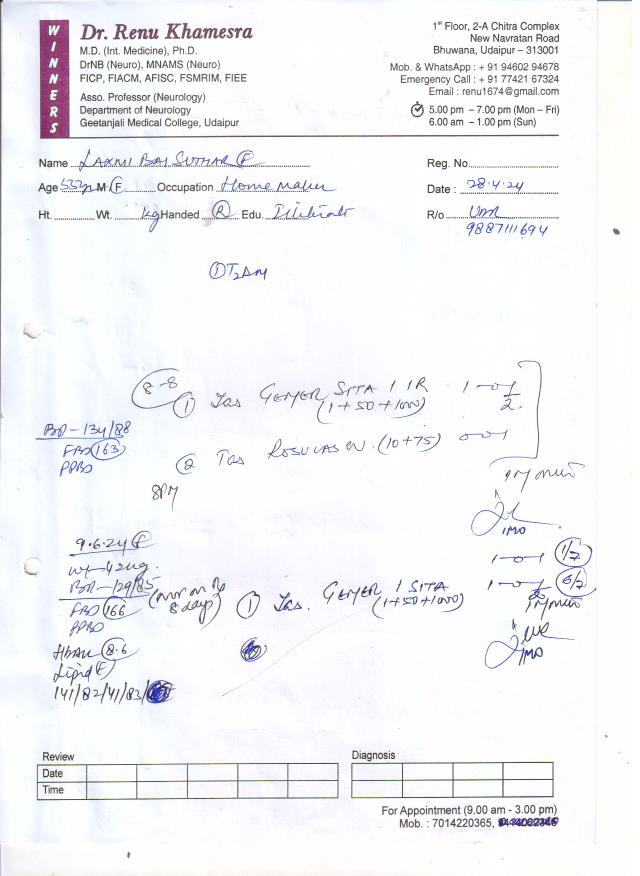 WINNERS
Dr. Renu Khamesra
M.D. (Int. Medicine), Ph.D.
DrNB (Neuro), MNAMS (Neuro)
FICP, FIACM, AFISC, FSMRIM, FIEE
Asso. Professor (Neurology)
Department of Neurology
Geetanjali Medical College, Udaipur
1st Floor, 2-A Chitra Complex
New Navratan Road
Bhuwana, Udaipur – 313001
Mob. & WhatsApp : + 91 94602 94678
Emergency Call : + 91 77421 67324
Email : renu1674@gmail.com
5.00 pm – 7.00 pm (Mon – Fri)
6.00 am – 1.00 pm (Sun)
Name LAXMI BAI SUTHAR F Reg. No.
Age 53 M F Occupation Home Maker Date : 28.4.24
Ht. Wt. kg Handed R Edu. R/o UDR
9887111694
① T2DM
8-8
① Tas GEMER SITA 1 IR 1-0-1/2
(1+50+1000)
BP-134/88
FBS 163
PPBS
② Tas ROSUVAS (10+75) 0-0-1
8PM
IMO
9.6.24 F
Wt-42kg
BP-129/85
FBS 166
PPBS
8 days)
① Tas. GEMER 1 SITA
(1+50+1000)
1-0-1 1/7
1-0-1 6/7
IMO
8.6
Lipid
141/82/41/83/
Review
Date
Time
Diagnosis
For Appointment (9.00 am - 3.00 pm)
Mob. : 7014220365,